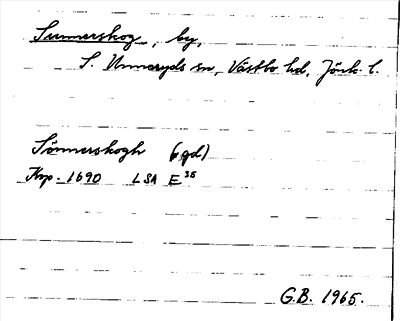 Sunnerskog, by,
S. Unnaryds sn, Västbo hd, Jönk. l.
Sönnerskogh (gd)
Krp. 1690 LSA E³⁵
G.B. 1965.